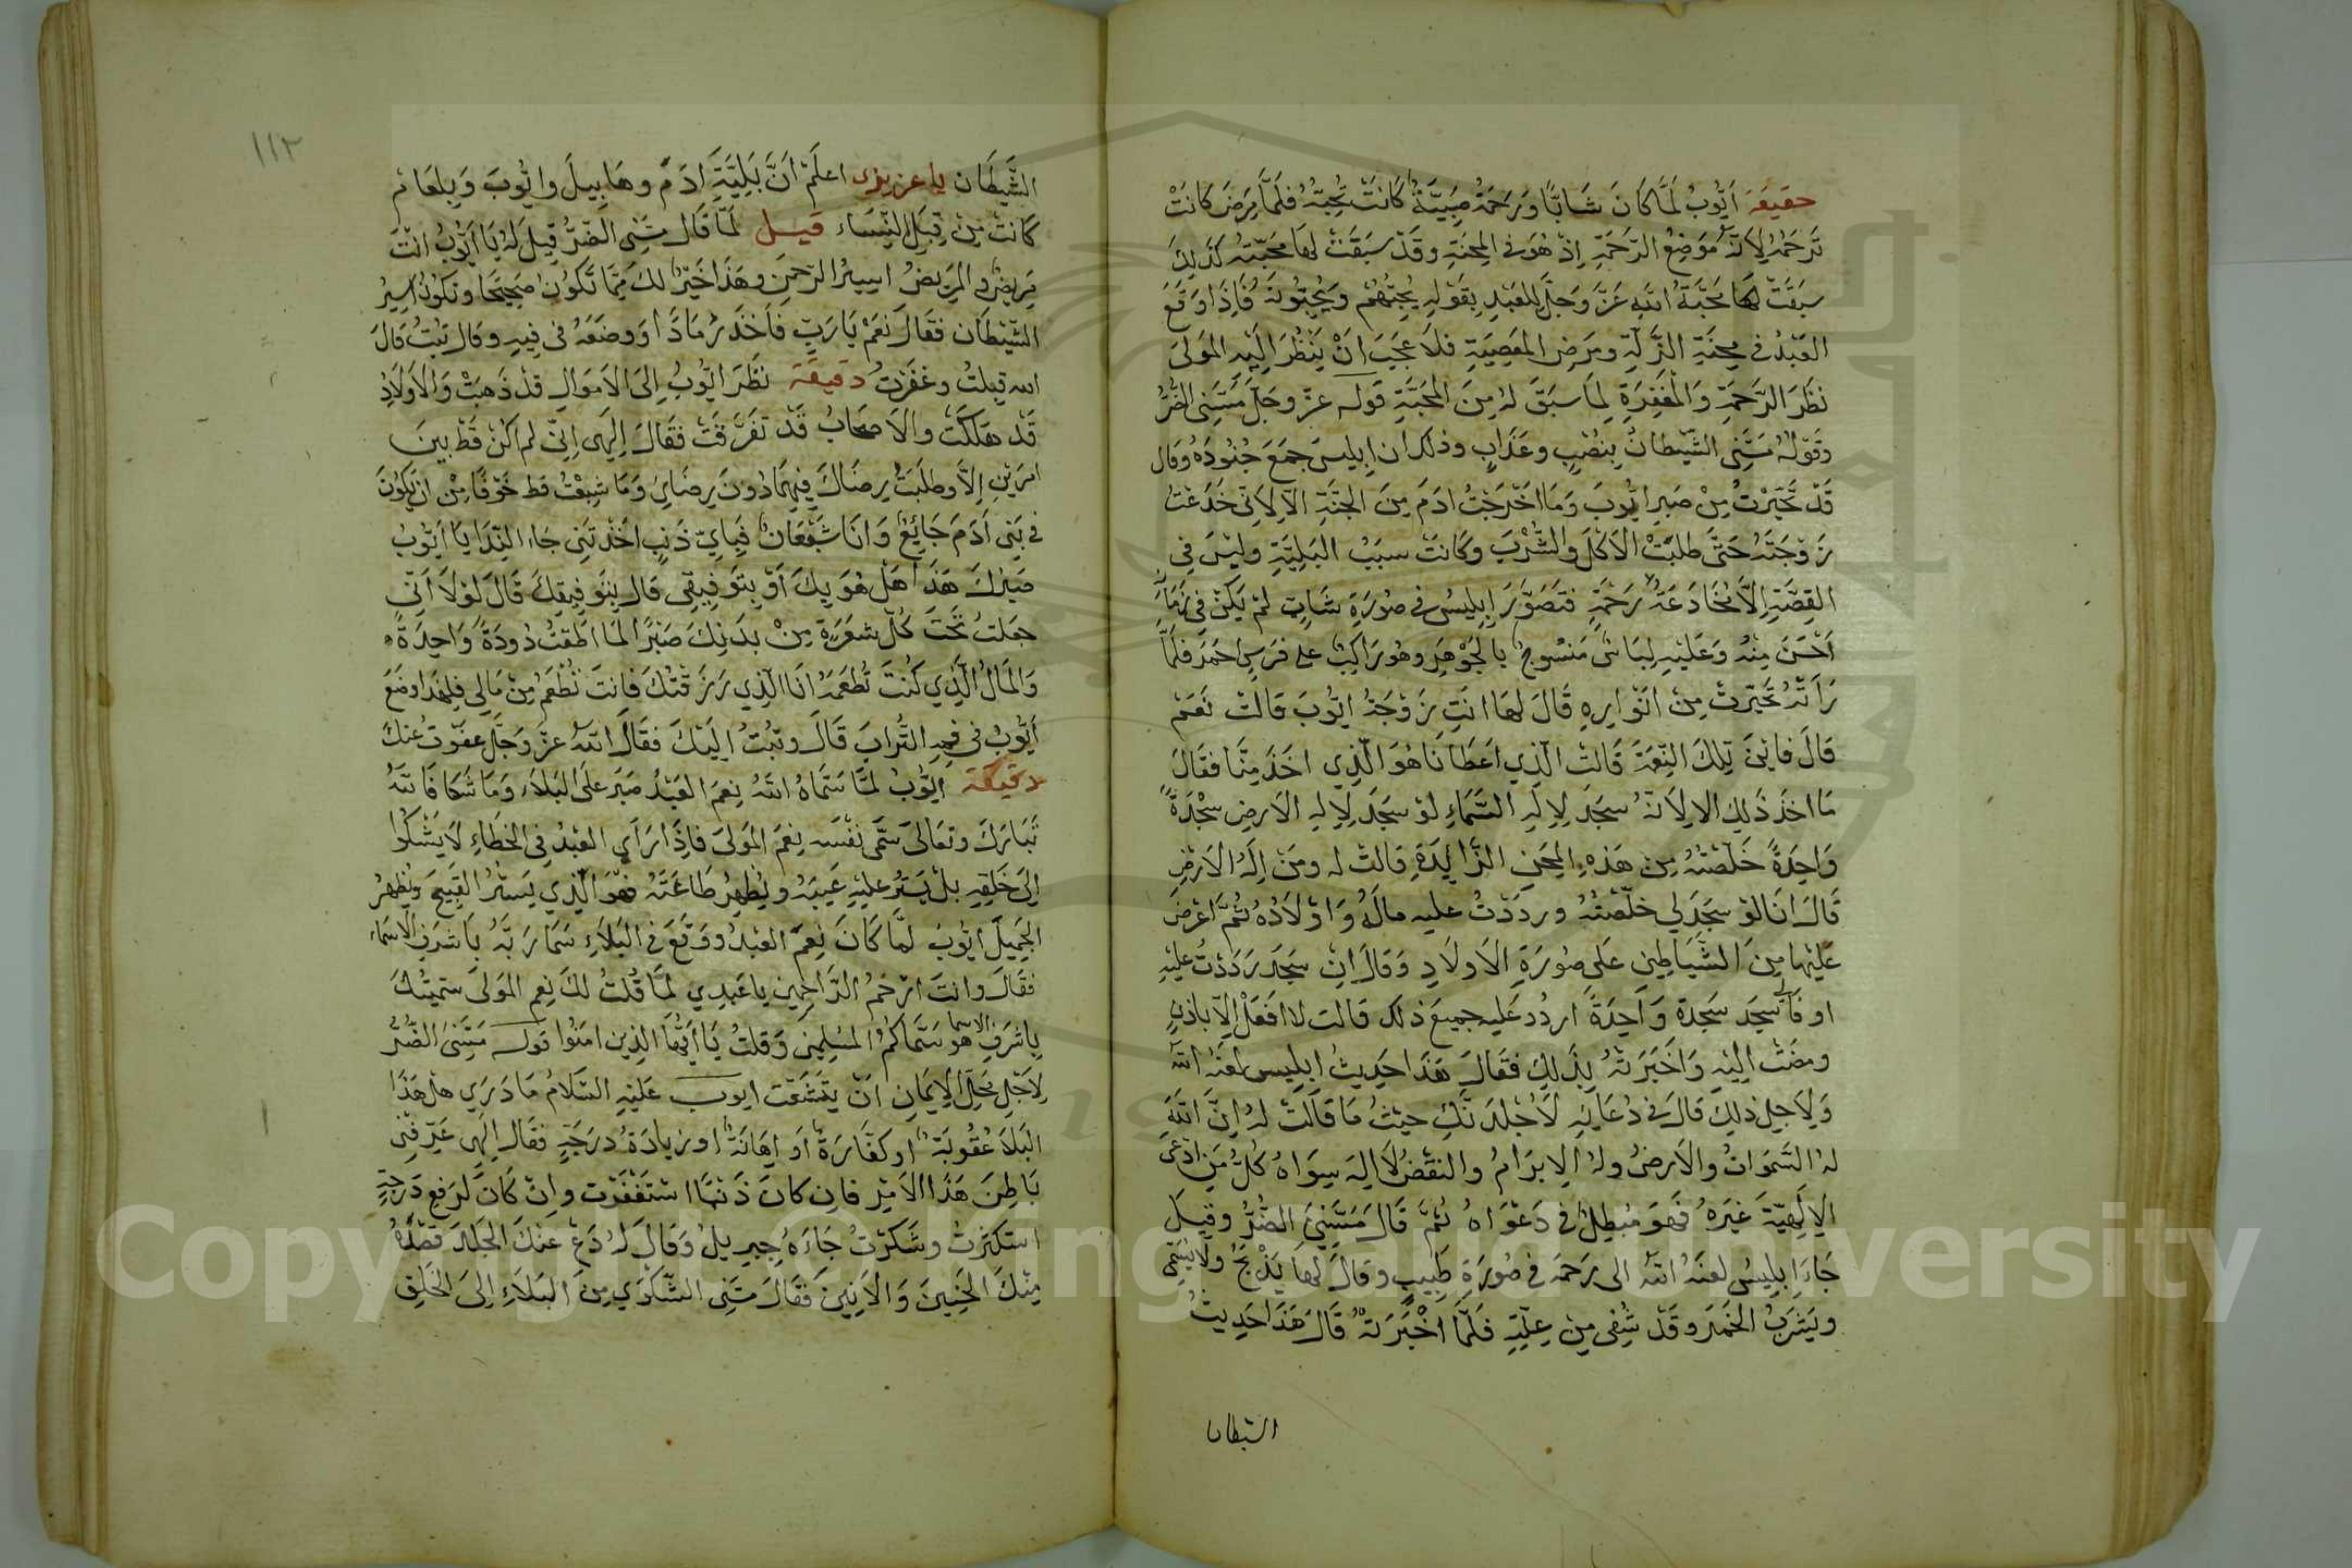 حقيقة أَيّوبُ لَمَّا كَانَ شَابًّا وَرَحْمَةُ صَبِيَّةً كَانَتْ تُحِبُّهُ فَلَمَّا مَرِضَ كَانَتْ
تَرْحَمُهُ لِاَنَّهُ مَوْضِعُ الرَّحْمَةِ اِذْ هُوَ فى المِحْنَةِ وقَدْ سَبَقَتْ لَهَا مَحَبَّتُهُ كَذَلِكَ
سَبَقَتْ لهَا مَحَبَّةُ اللهِ عَزَّ وَجَلَّ لِلعَبْدِ بِقَوْلِهِ يُحِبُّهُمْ وَيُحِبُّونَهُ فَاِذَا وَقَعَ
العَبْدُ فى مِحْنَةِ الزَّلّةِ ومَرَضِ المَعْصِيَةِ فَلاَ عَجَبَ اَنْ يَنْظُرَ اِلَيْهِ المَوْلىَ
نَظَرَ الرَّحْمَةِ وَالْمَغْفِرَةِ لِمَا سَبَقَ لَهُ مِنَ المَحَبَّةِ قوله عزّ وجلّ مَسَّنِى الضُّرُّ
وقَوْلُهُ مَسَّنِى الشَّيْطَانُ بِنُصْبٍ وعَذَابٍ وذلك ان اِبليسَ جَمَعَ جُنُودَهُ وقال
قَدْ تَحَيَّرْتُ مِنْ صَبرِ ايّوبَ وَمَا اخْرَجْتُ ادَمَ مِنَ الجَنَّةِ اِلاّ لِاَنِّى خَدَعْتُ
زَوْجَتَهُ حَتَّى طلبَتْ الاَكْلَ والشُّرْبَ وكَانَتْ سبَبُ البَلِيَّةِ وليْسَ فى
القِصَّةِ اِلاَّ مُخَادَعَةُ رَحْمَةِ فتَصَوَّرَ اِبليسُ فى صُورَةِ شَابٍّ لمْ يَكُنْ فى زَمَانِ
اَحْسَنَ مِنْهُ وَعَلَيْهِ لِبَاسٌ مَنْسُوجٌ بِالجَوْهَرِ وهُوَ رَاكِبٌ على فَرَسٍ احْمَرَ فلمَّا
رَأَتْهُ تَحَيَّرَتْ مِنْ انْوَارِهِ قَالَ لهَا انتِ زَوْجَةُ ايّوبَ قالَتْ نَعَمْ
قَالَ فاَيْنَ تِلْكَ النِّعْمَةَ قَالَت الّذِي اعْطَانَا هُوَ الّذِي اخَذَ مِنَّا فقَالَ
مَا اخَذَ ذَلِك الا لِاَنَّهُ سجَدَ لِاِلهِ السَّمَاءِ لوْ سجَدَ لِاِلهِ الاَرْضِ سَجْدَةً
وَاحِدَةً خَلَّصْتُهُ مِن هَذِهِ المِحَنِ الزَّائِدَةِ قالَتْ له ومَنْ اِلَهُ الاَرْضِ
قَالَ انَا لَوْ سجَدَ لِى خلّصْتُهُ ورَدَدْتُ عليه مالَهُ وَاوْلاَدُهُ ثمَّ اعْرَضَ
عَلَيْهَا مِنَ الشَّيَاطِينِ عَلَى صُورَةِ الاَولاَدِ وَقَالَ اِنْ سجَدَ رَدَدْتُ عَلَيْهِ
او فَاَنْتِ سجَدَ سَجْدَة وَاحِدَةً اَرْدُد عَليه جميعَ ذلك قَالت لا افْعَلُ اِلاّ باذنهِ
ومضَتْ اِلَيْهِ وَاخْبَرَتْهُ بِذَلِكَ فقَالَ هَذَا حَدِيثُ اِبليس لعَنَهُ اللهُ
وَلِاَجْلِ ذلِكَ قَالَ فى دُعَائِهِ لَاُجْلِدَنَّكِ حيْثُ مَا قَالَتْ لهُ اِنَّ اللهَ
لهُ السَّمَوَاتُ والاَرْضُ ولهُ الاِبرَامُ والنقْضُ لاَ اِلهَ سِوَاهُ كُلُّ مَنِ ادّعَى
الاِلَهِيَّةَ غَيْرَهُ فَهوَ مُبْطِلٌ فى دَعْوَاهُ ثُمَّ قَالَ مَسَّنِيَ الضُّرُّ وقِيلَ
جَاءَ اِبليسُ لعنَهُ اللهُ الى رَحمَة فى صُورَةِ طَبِيبٍ وقالَ لَهَا يَذْبَحُ ولاَ يُسَمّى
ويَشْرَبُ الخَمْرَ وقَدْ شُفِى مِن عِلّتِهِ فَلَمَّا اخْبَرَتْهُ قَالَ هَذَا حَدِيثُ
الشيطان
١١٢
الشَّيْطَان يا عزيزى اعلَمْ اَنَّ بَلِيَّةِ ادَمَ وهَابيلَ وايّوبَ وَبلعَام
كَانتْ مِنْ قِبَلِ النِّسَاء قيل لمّا قال مَسَّنِى الضُّرُّ قِيلَ لهُ يَا ايّوبُ انتَ
مَرِيضٌ والمَرِيضُ اسيرُ الرّحمَنِ وهَذَا خَيْرٌ لكَ مِمَّا تَكُونُ صَحِيحًا وتكونُ اسِيرُ
الشَّيْطَان فقَالَ نعَمْ يَا رَبِّ فَاخَذَ رَمَادًا ووضَعَهُ فى فِيهِ وقال تبتُ قالَ
الله قبِلتُ وغَفَرْتُ دقيقة نظَرَ ايّوبُ اِلىَ الاَموَالِ قدْ ذَهبَتْ وَالاَولاَدُ
قَدْ هَلَكَتْ والاَصْحَابُ قَدْ تفَرَّقَتْ فقَالَ اِلهَِى اِنِّى لم اكُنْ قَطّ بينَ
امرَيْنِ اِلاَّ وطلَبْتُ رِضَاكَ فِيهِمَا دُونَ رِضَاىَ وَمَا شبِعْتُ قط خَوْفًا مِنْ ان يَكُونَ
فى بَنى اَدَمَ جَائِعٌ وَانَا شَبْعَانٌ فَبِاَيِّ ذَنبٍ اخَذْتَنِى جَاءَ النِّدَا يَا ايّوبُ
صَبْرُكَ هَذَا هَلْ هُوَ بِكَ اَوْ بِتَوفِيقِى قال بِتَوفِيقِكَ قَالَ لوْلاَ اَنِّى
جعَلتُ تحتَ كُلِّ شعَرَةٍ مِنْ بدَنِكَ صَبْرًا لَمَا اطَقْتُ دُودَةً وَاحِدَةً
وَالمَالُ الّذِي كُنتَ تُطعِمُهُ انَا الّذِي رَزَقْتُكَ فاَنتَ تُطْعِمُ مِنْ مَالِى فلِهَذَا وضَعَ
اَيّوبُ فى فمِهِ التُّرَابَ قَالَ وتبْتُ اِلَيْكَ فقَالَ اللهُ عزّ وَجَلَّ عفَوْتُ عَنْكَ
دقيقة ايّوبُ لمَّا سَمَّاهُ اللهُ نِعْمَ العَبْدُ صَبَرَ علَى البَلاَءِ وَمَا شَكَا فَاللهُ
تَبَارَكَ وتعَالىَ سَمَّى نفْسَه نِعْمَ المَولىَ فاِذَا رَاَي العَبْدُ فِى الخَطَاءِ لاَ يَشْكُوا
اِلىَ خَلقِهِ بلْ يَسْتُرُ عليْهِ عَيبَهُ ويُظْهِرُ طَاعَتَهُ فهْوَ الّذِي يَسْتُرُ القَبِيحَ ويُظهِرُ
الجَمِيلَ ايّوبُ لمَّا كَانَ نِعْمَ العَبْدُ ووقَعَ فى البَلاَءِ سَمَا رَبَّهُ بِاَشْرَفِ الاَسْمَاء
فقَالَ وانتَ ارْحَمُ الرَّاحِمِين يا عَبدِي لمَّا قُلتُ لكَ نِعم المَولىَ سَمّيْتُكَ
بِاشرَفِ الاسما هو سَمَّاكمُ المُسْلِمِينَ وَقلتُ يَا ايُّهَا الذِين امَنُوا قوله مَسَّنِىَ الضُّرُّ
لِاَجْلِ مَحَلِّ الاِيمَانِ اَنْ يَتَشَعَّث ايوب عَلَيْهِ السَّلاَمُ مَا دَرَي هَلْ هَذَا
البَلاَ عُقُوبَةٌ او كَفَّارَةٌ اَو اِهَانَةٌ او زيَادَةُ درَجَةٍ فقَال اِلهَِى عَرِّفْنِى
بَاطِنَ هَذَا الاَمْرِ فان كانَ ذَنْبًا اسْتَغْفَرْت وانْ كَانَ لرَفعِ دَرجَةٍ
استكثرتُ وشَكَرْتُ جَاءَهُ جِبرِيلُ وَقَالَ لهُ دَعْ عنكَ الجَلَدَ قصْدُهُ
مِنْكَ الحَنِينَ وَالاَنِينَ فقَالَ مَسَّنِى الشَّكْوَي مِنَ البَلاَءِ اِلىَ الخَلقِ
Copyright © King Saud University